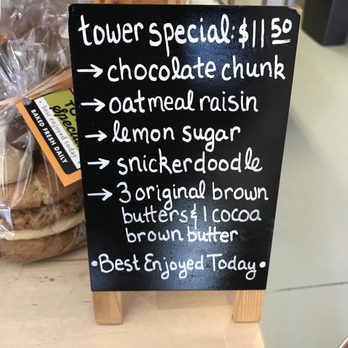 tower special: $11.50
→ chocolate chunk
→ oatmeal raisin
→ lemon sugar
→ snickerdoodle
→ 3 original brown
butters & 1 cocoa
brown butter
• Best Enjoyed Today •
best enjoyed today
BAKED FRESH DAILY